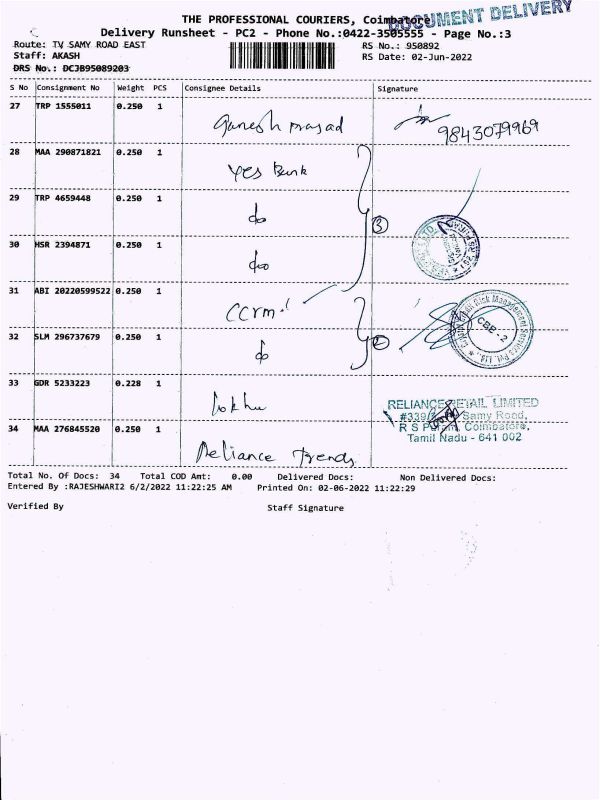 THE PROFESSIONAL COURIERS, Coimbatore
DOCUMENT DELIVERY
Delivery Runsheet - PC2 - Phone No.:0422-3505555 - Page No.:3
Route: TV SAMY ROAD EAST
RS No.: 950892
Staff: AKASH
RS Date: 02-Jun-2022
DRS No.: DCJB95089203
S No Consignment No Weight PCS Consignee Details Signature
27 TRP 1555011 0.250 1
Ganesh Prasad 9843079969
28 MAA 290871821 0.250 1
Yes Bank
29 TRP 4659448 0.250 1
do
3
30 HSR 2394871 0.250 1
do
31 ABI 20220599522 0.250 1
CCRM
32 SLM 296737679 0.250 1
do
2
CBE - 2
Risk Management Services Pvt. Ltd.
33 GDR 5233223 0.228 1
RELIANCE RETAIL LIMITED
#339/ Samy Road,
R S Puram, Coimbatore,
Tamil Nadu - 641 002
34 MAA 276845520 0.250 1
Reliance Trends
Total No. Of Docs: 34 Total COD Amt: 0.00 Delivered Docs: Non Delivered Docs:
Entered By :RAJESHWARI2 6/2/2022 11:22:25 AM Printed On: 02-06-2022 11:22:29
Verified By Staff Signature